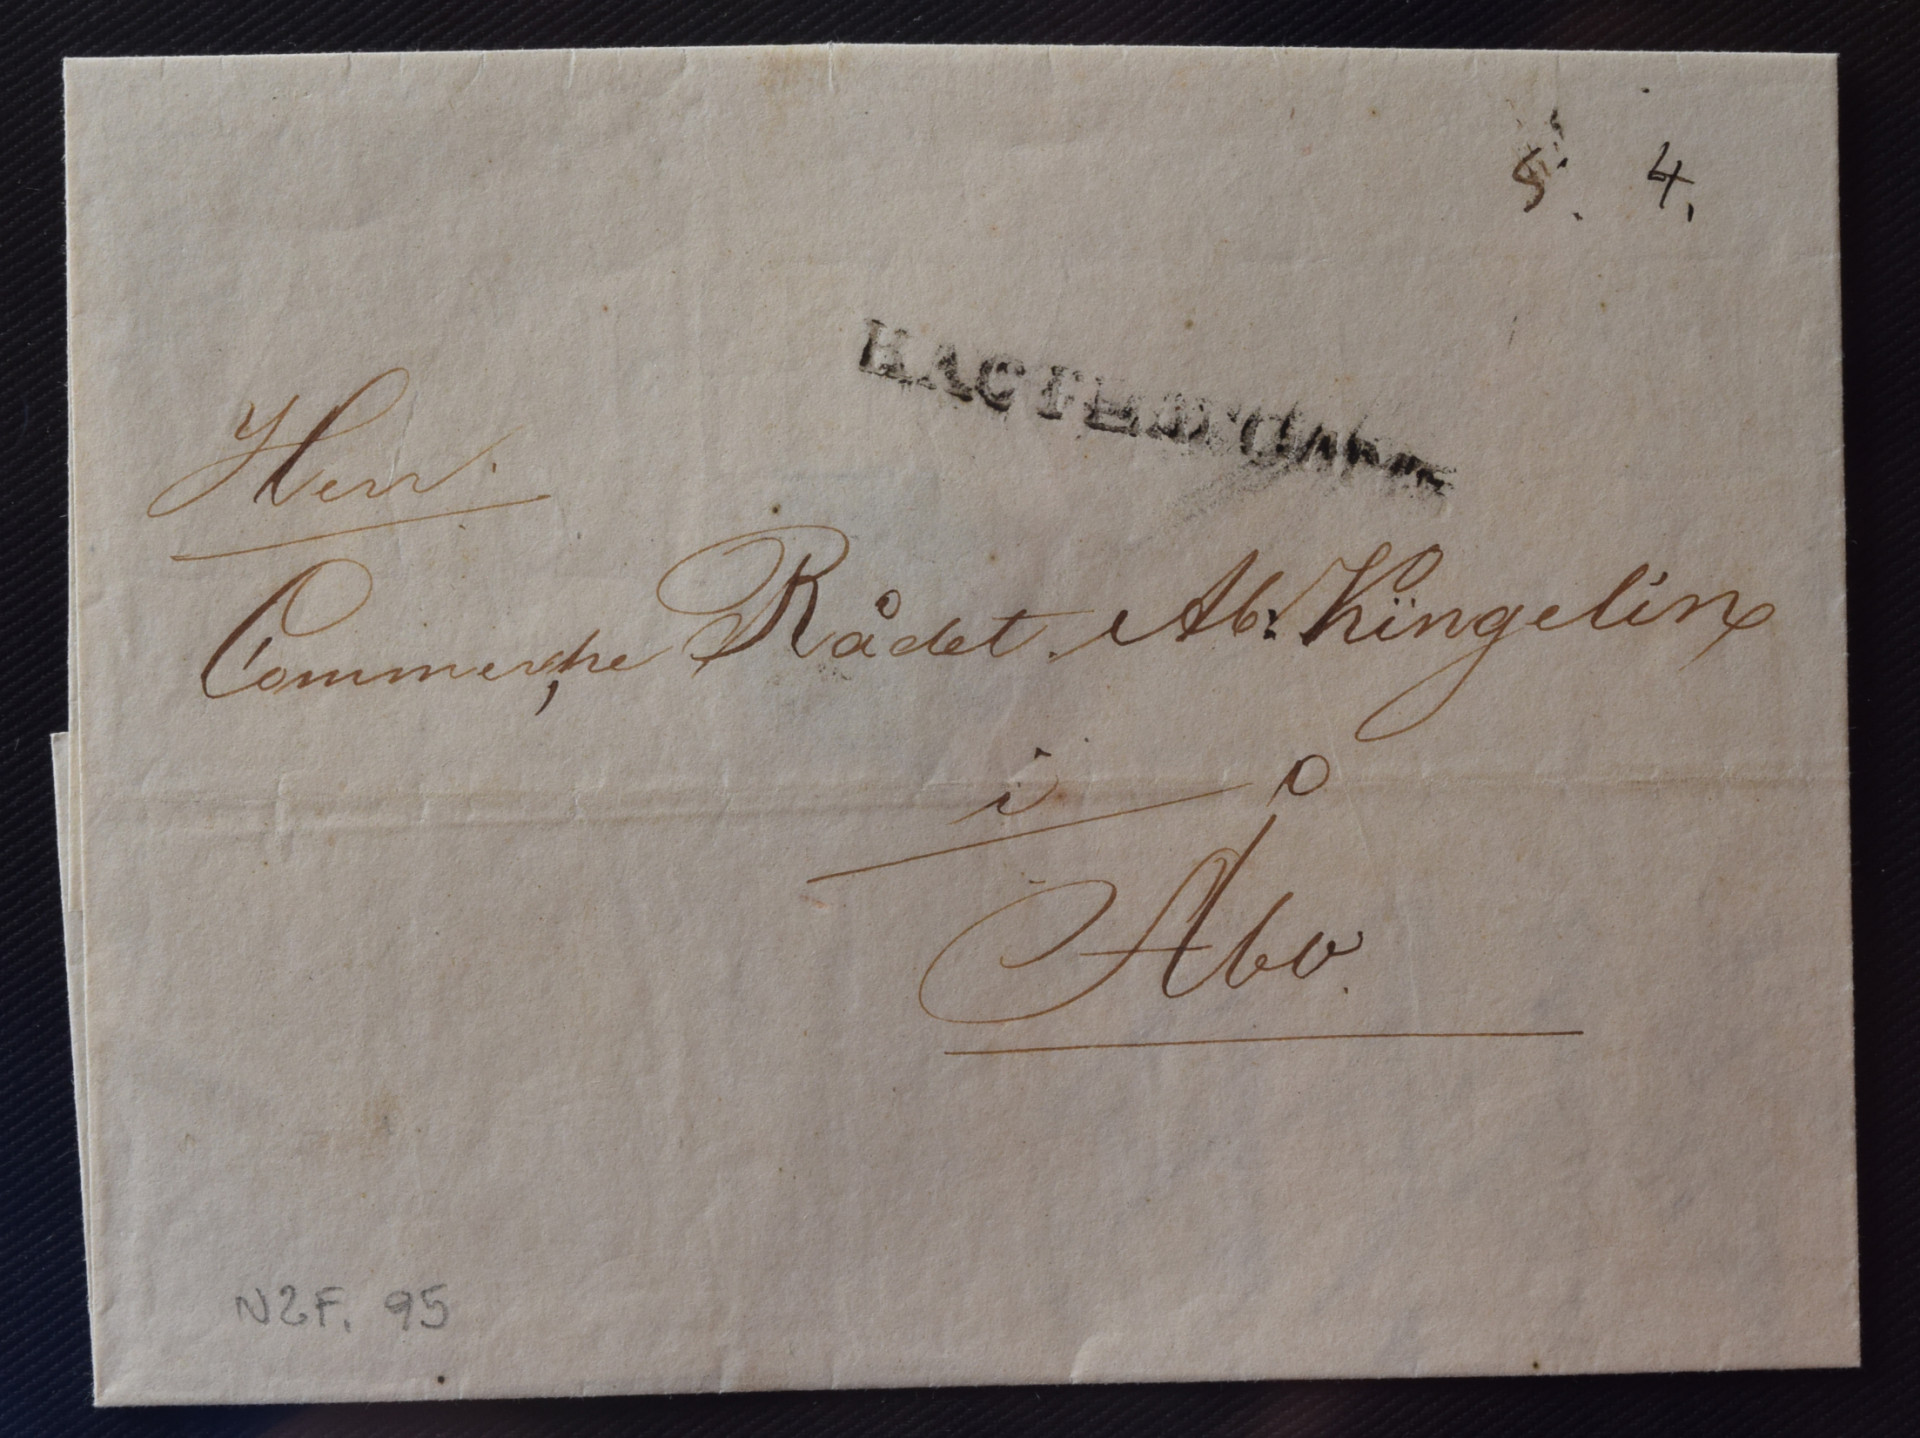 5. 4.
Herr
Commerce Rådet Ab: Kingelin
i
Åbo.
N2F. 95